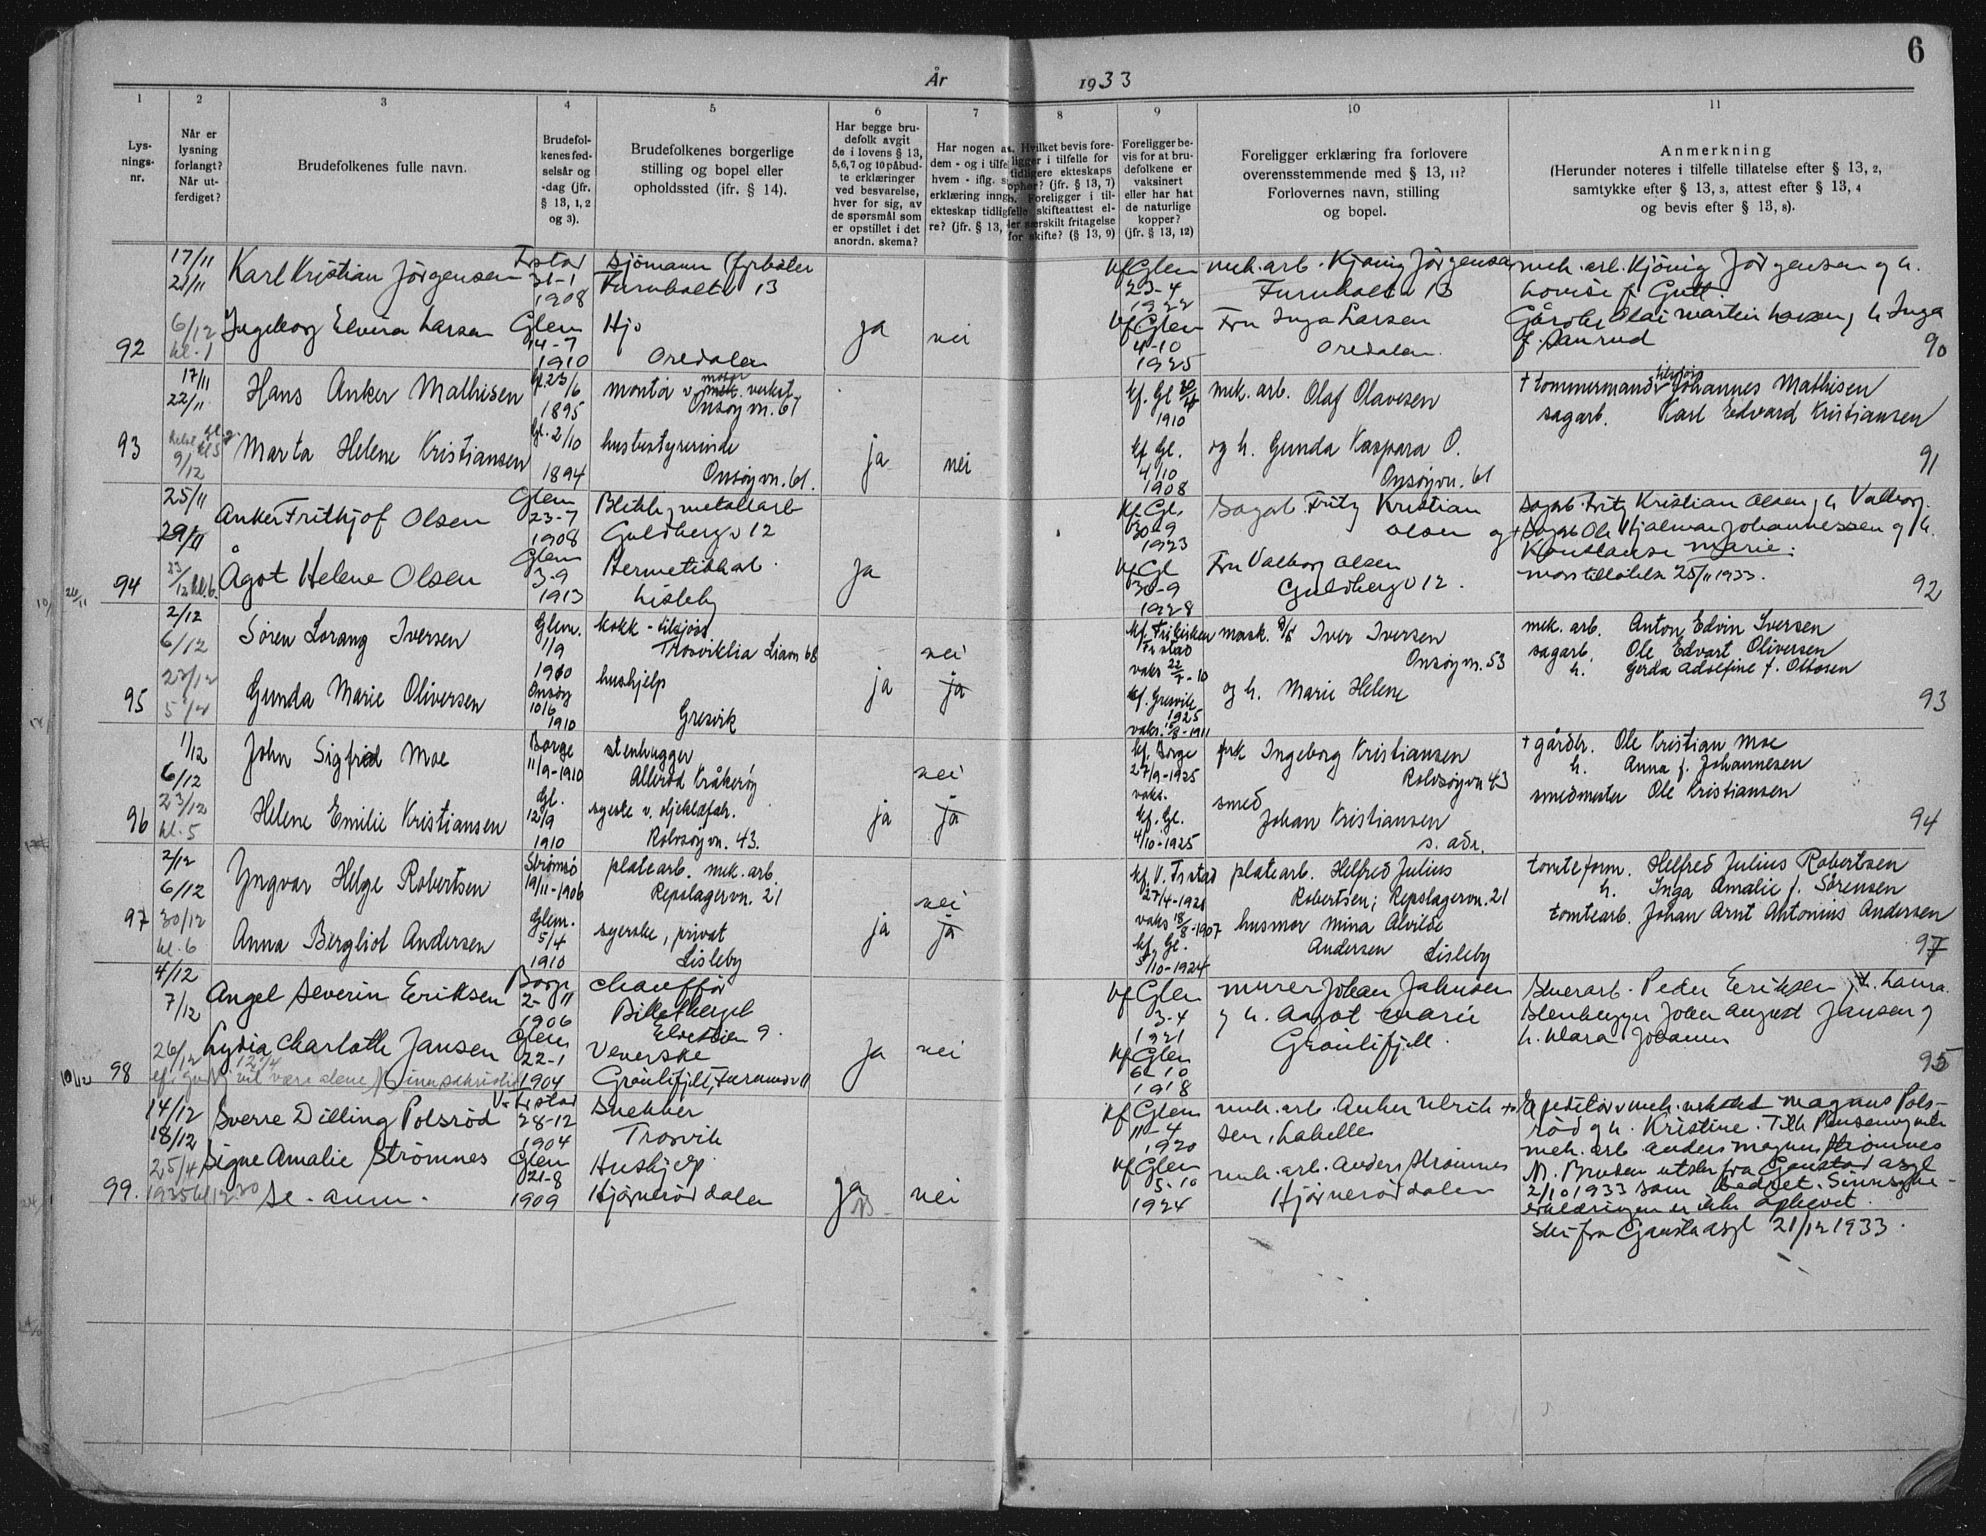 6
År 1933
1 2 3 4 5 6 7 8 9 10 11
Lys-
nings-
nr.
Når er
lysning
forlangt?
Når ut-
ferdiget?
Brudefolkenes fulle navn.
Brudefol-
kenes fød-
selsår og
-dag (jfr.
§ 13, 1, 2
og 3).
Brudefolkenes borgerlige
stilling og bopel eller
opholdssted (ifr. § 14).
Har begge bru-
defolk avgit
de i lovens § 13,
5,6,7 og 10 påbud-
te erklæringer
ved besvarelse,
hver for sig, av
de spørsmål som
er opstillet i det
anordn. skema?
Har nogen a
dem - og i tilfe
hvem - iflg. s
erklæring inng
ekteskap tidlig
re? (jfr. § 13,
Hvilket bevis fore-
ligger i tilfelle for
tidligere ekteskaps
ophør? (jfr. § 13, 7)
b. Foreligger i til-
felle skifteattest el-
ler særskilt fritagelse
for skifte? (§ 13, 9)
Foreligger be-
vis for at bru-
defolkene er
vaksinert
eller har hat
de naturlige
kopper?
(jfr. § 13, 12)
Foreligger erklæring fra forlovere
overensstemmende med § 13, 11?
Forlovernes navn, stilling
og bopel.
Anmerkning
(Herunder noteres i tilfelle tillatelse efter § 13, 2,
samtykke efter § 13, 3, attest efter § 13, 4
og bevis efter § 13, 8).
92
17/11
21/11
6/12
kl. 1
Karl Kristian Jörgensen
Ingeborg Elvira Larsen
Frstad
31-1
1908
Glem
14-7
1910
Sjömann (fyrböter
Furuholtv 13
Hjv
Oredalen
ja
nei
kf Glem
23-4
1922
kf Glem
4-10
1925
mek. arb. Kjönig Jörgensen
Furuholtv 13
Fru Inga Larsen
Oredalen
mek. arb. Kjönig Jörgensen og h.
Lovise f. Gutt
Gårdbr Olai Martin Larsen, h Inga
f. Sanrud
90
93
17/11
22/11
9/12
Hans Anker Mathisen
Marta Helene Kristiansen
Gl. 23/6
1895
Gl. 2/10
1894
montör v. mek. verkst.
motor
Onsøyvn. 61
husbestyrerinde
Onsøyvn. 61.
ja
nei
kf. Gl
1910
kf Gl.
4/10
1908
mek. arb. Olaf Olavesen
og h. Gunda Kaspara O.
Onsøyvn. 61
† tömmermand Johannes Mathisen
sagarb. Karl Edvard Kristiansen
91
94
25/11
29/11
23/12 kl. 6
26/11
Anker Frithjof Olsen
Ågot Helene Olsen
Glem
23-7
1908
Glem
3-9
1913
Blikk, metallarb
Guldbergv 12
Hermetikkarb.
Lisleby
ja
kf Gl.
30-9
1923
kf Gl
30-9
1928
Sagarb. Fritz Kristian
Olsen og
Fru Valborg Olsen
Guldbergv 12.
Sagarb. Fritz Kristian Olsen, h Valborg.
† Sagarb Ole Hjalmar Johannessen og h.
Konstanse Marie.
Mors tillatelse 25/11 1933.
92
95
2/12
6/12
23/12
Sören Lorang Iversen
Gunda Marie Oliversen
Glem.
1/9
1900
Onsøy
10/6
1910
kokk - tilsjøss
Trosviklia Liavn 68
hushjelp
Gresvik
ja
nei
ja
kf. Frikirken
Frstad
vaks. 22/7-10
kf. Gresvik
1925
vaks. 15/8-1911
mask. Iver Iversen
Onsøyvn. 53
og h. Marie Helene
mek. arb. Anton Edvin Iversen
sagarb. Ole Edvart Oliversen
h. Gerda Adolfine f. Ottosen
93
96
1/12
6/12
23/12
kl. 5
John Sigfred Moe
Helene Emilie Kristiansen
Borge
11/9-1910
Gl.
12/9
1910
stenhugger
Alleröd Kråkeröy
syerske v. oljeklæfabr.
Rolvsøyvn. 43.
ja
nei
ja
kf. Borge
27/9-1925
vaks.
kf. Gl.
4/10-1925
frk Ingeborg Kristiansen
Rolvsøyvn 43
smed
Johan Kristiansen
s. adr.
† gårdbr. Ole Kristian Moe
h. Anna f. Johannesen
smedmester Ole Kristiansen
94
97
2/12
6/12
30/12
kl. 6
Yngvar Helge Robertsen
Anna Bergliot Andersen
Strömsö
19/11-1906
Glem.
5/4
1910
platearb. mek. arb
Repslagervn. 21
syerske, privat
Lisleby
ja
nei
ja
kf. V. Frstad
27/4-1921
vaks 18/8-1907
kf. Gl.
5/10-1924
platearb. Helfred Julius
Robertsen; Repslagervn. 21
husmor Mina Alvilde
Andersen Lisleby
tomteform. Helfred Julius Robertsen
h. Inga Amalie f. Sörensen
tomtearb. Johan Arnt Antonius Andersen
97
98
4/12
7/12
26/12
10/12
Angel Severin Eriksen
Lydia Charlotte Jansen
Borge
2-11
1906
Glem
22-1
1904
Chauffør
Veverske
Grönlifjell, Furulundv 11
ja
nei
kf Glem
3-4
1921
kf Glem
6-10
1918
murer Johan Jahnsen
og h. Aagot Marie
Grönlifjell.
Peder Eriksen, h. Laura.
Stenhugger Johan August Jansen og
h. Klara Johanne
95
99.
14/12
18/12
25/4
1935 kl 12.30
Sverre Dilling Polsröd
Signe Amalie Strömnes
Se. anm.
V. Frstad
28-12
1904
Glem
21-8
1909
Snekker
Trosvik
Hushjelp
Hjörneröddalen
ja
nei
kf Glem
11-4
1920
kf Glem
5-10
1924
mek. arb. Anker Ulrik
sen, Labelle
mek. arb. Anders Strömnes
Hjörneröddalen
Ekspeditör v mek. verksted Magnus Pols-
röd og h. Kristine.
mek. arb Anders Magnus Strömnes
N. Bruden utskr fra Gaustad asyl
2/10 1933 som bedret. Sinnsyke-
erklæringen er ikke ophevet
Skr. fra Gaustad asyl 21/12 1933.